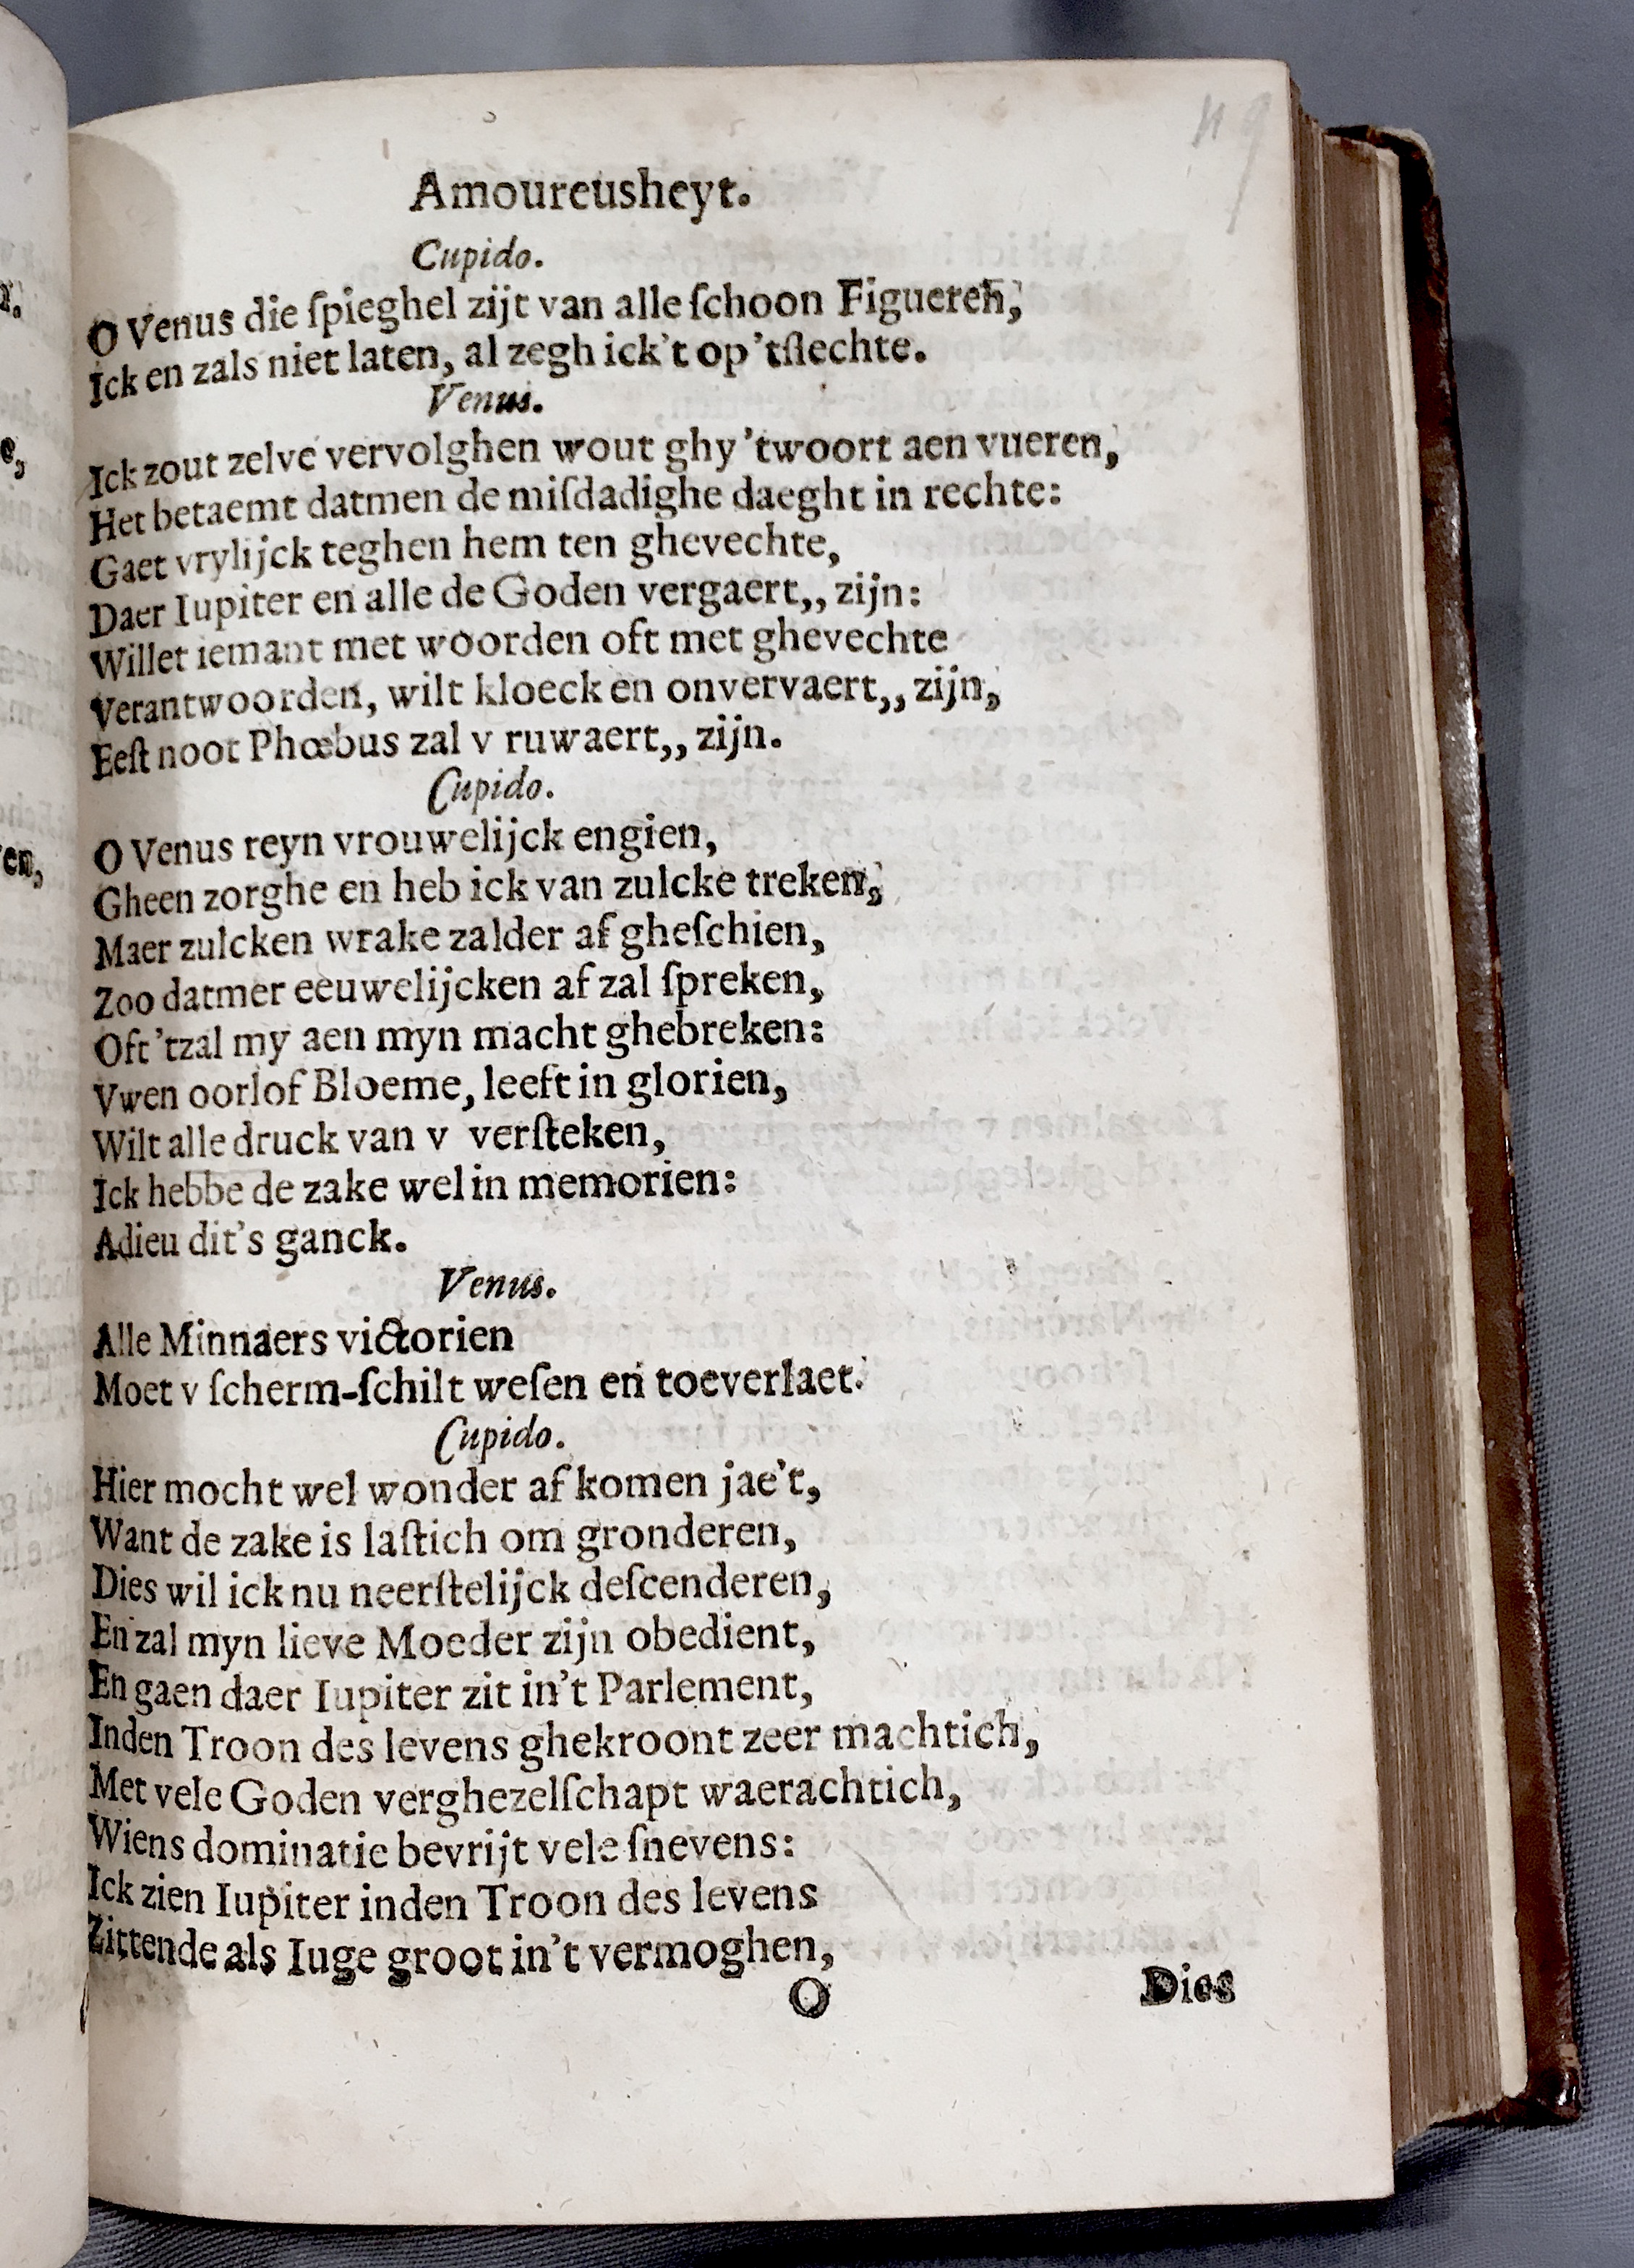 119
Amoureusheyt.
Cupido.
O Venus die ſpieghel zijt van alle ſchoon Figueren,
Ick en zals niet laten, al zegh ick't op 'tſlechte.
Venus.
Ick zout zelve vervolghen wout ghy 'twoort aen vueren,
Het betaemt datmen de miſdadighe daeght in rechte:
Gaet vrylijck teghen hem ten ghevechte,
Daer Iupiter en̄ alle de Goden vergaert,, zijn:
Willet iemant met woorden oft met ghevechte
Verantwoorden, wilt kloeck en onvervaert,, zijn,
Eeſt noot Phœbus zal v ruwaert,, zijn.
Cupido.
O Venus reyn vrouwelijck engien,
Gheen zorghe en heb ick van zulcke treken,
Maer zulcken wrake zalder af gheſchien,
Zoo datmer eeuwelijcken af zal ſpreken,
Oft 'tzal my aen myn macht ghebreken:
Vwen oorlof Bloeme, leeft in glorien,
Wilt alle druck van v verſteken,
Ick hebbe de zake wel in memorien:
Adieu dit's ganck.
Venus.
Alle Minnaers victorien
Moet v ſcherm-ſchilt weſen en̄ toeverlaet.
Cupido.
Hier mocht wel wonder af komen jae't,
Want de zake is laſtich om gronderen,
Dies wil ick nu neerſtelijck deſcenderen,
En zal myn lieve Moeder zijn obedient,
En gaen daer Iupiter zit in't Parlement,
Inden Troon des levens ghekroont zeer machtich,
Met vele Goden verghezelſchapt waerachtich,
Wiens dominatie bevrijt vele ſnevens:
Ick zien Iupiter inden Troon des levens
Zittende als Iuge groot in't vermoghen,
O Dies